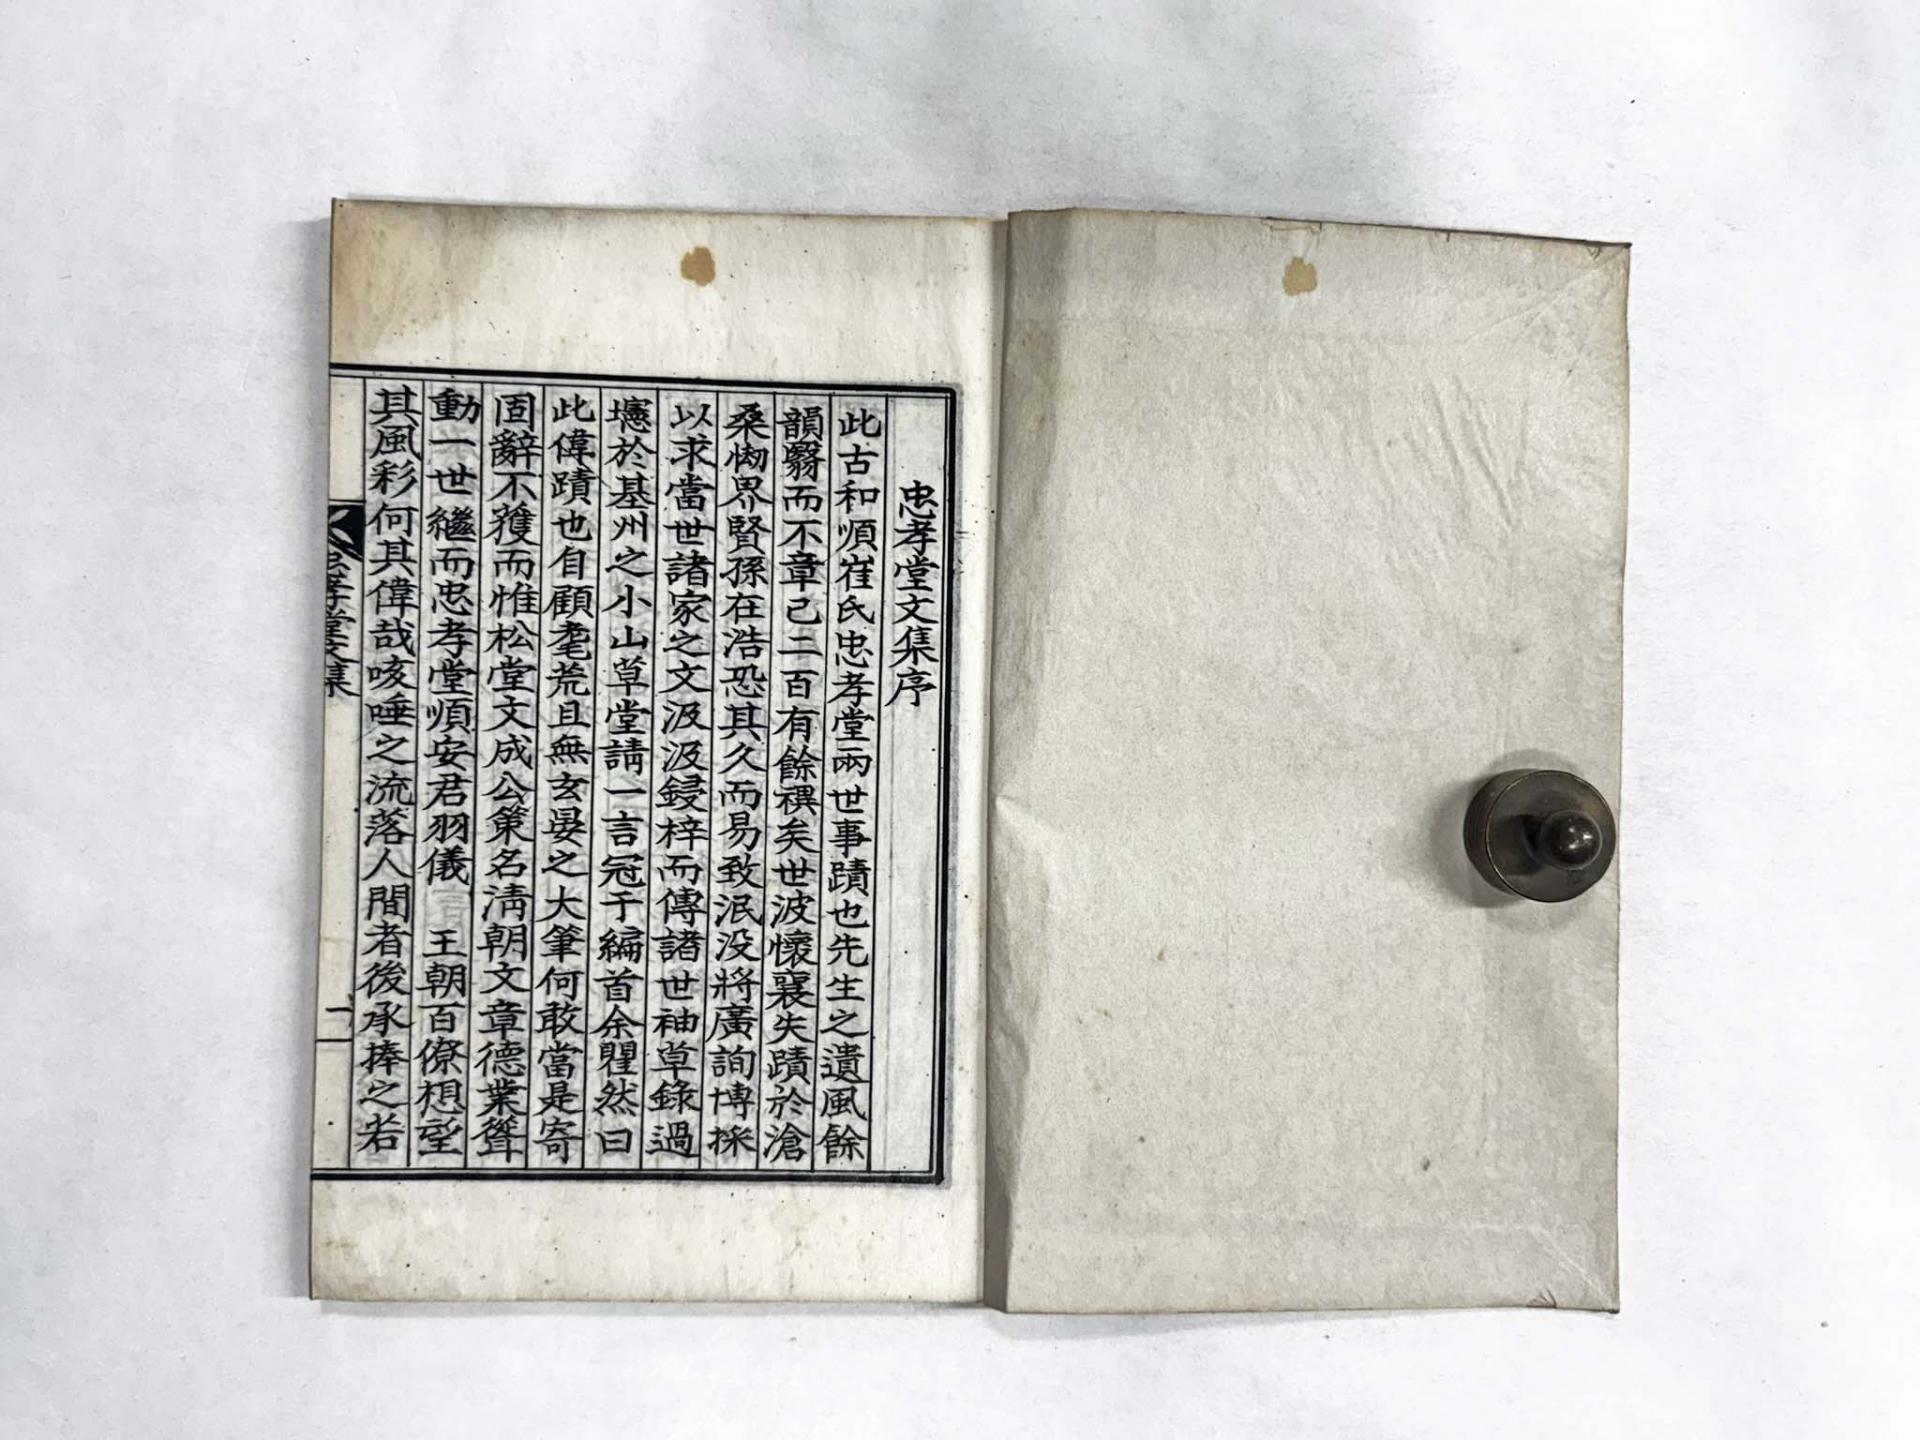 忠孝堂文集序
此古和順崔氏忠孝堂兩世事蹟也先生之遺風餘
韻翳而不章已二百有餘禩矣世波懷襄失蹟於滄
桑惚界賢孫在浩恐其久而易致泯没將廣詢博採
以求當世諸家之文汲汲鋟梓而傳諸世袖草錄過
㙜於基州之小山草堂請一言冠于編首余瞿然曰
此偉蹟也自顧耄荒且無玄晏之大筆何敢當是寄
固辭不獲而惟松堂文成公策名淸朝文章德業聳
動一世繼而忠孝堂順安君羽儀 王朝百僚想望
其風彩何其偉哉咳唾之流落人間者後承捧之若
忠孝堂文集
一